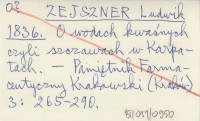 OZ
ZEJSZNER Ludwik
1836. O wodach kwaśnych
czyli szczawach w Karpa-
tach. – Pamiętnik Farma-
ceutyczny Krakowski (Kraków)
3: 265-290.